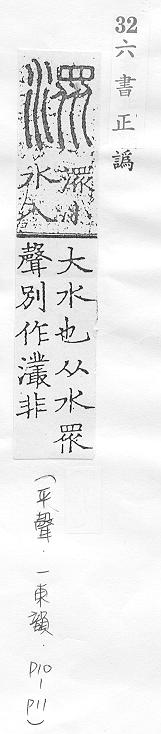 32 六書正譌
潨
潨小
水入
大水也从水眾
聲別作灇非
(平聲．一東韻．P10-P11)